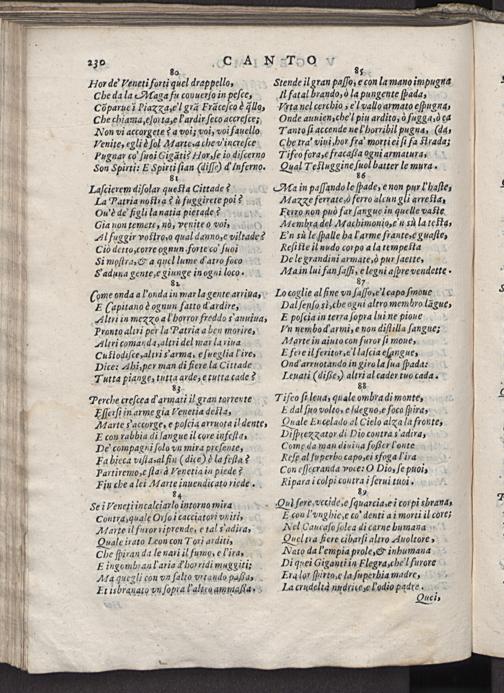 230 CANTO
80
Hor de' Veneti forti quel drappello,
Che da la Maga fu conuerso in pesce,
Cōparue ī Piazza, e'l grā Frācesco è q̄llo,
Che chiama, esorta, e l'ardir seco accresce;
Non vi accorgete? a voi; voi, voi fauello
Venite, egli è sol Marte, a che v'increse
Pugnar co' suoi Gigāti? Hor, se io discerno
Son Spirti: E Spirti sian (disse) d'Inferno.
81
Lascierem disolar questa Cittade?
La Patria nostra? ò fuggirete poi?
Ou'è de' figli la natia pietade?
Gia non temete, nò, venite o voi,
Al fuggir vostro, o qual danno, e viltade?
Ciò detto, corre ognun forte co' suoi
Si mostra, & a quel lume d'atro foco
S'aduna gente, e giunge in ogni loco.
82
Come onda a l'onda in mar la gente arriua,
E Capitano è ognun fatto d'ardire,
Altri in mezzo a l'horror freddo s'auuiua,
Pronto altri per la Patria a ben morire,
Altri comanda, altri del mar la riua
Custodisce, altri s'arma, e sueglia l'ire,
Dice: Ahi, per man di fiere la Cittade
Tutta piange, tutta arde, e tutta cade?
83
Perche crescea d'armati il gran torrente
Essersi in arme gia Venetia desta,
Marte s'accorge, e poscia arruota il dente,
E con rabbia di sangue il core infesta,
De' compagni solo vn mira presente,
Fa bieca vista; al fin (dice) è la festa?
Partiremo, e starà Venetia in piede?
Fin che a lei Marte inuendicato riede.
84
Se i Veneti incalciarlo intorno mira
Contra, quale Orso i cacciatori vniti,
Marte il furor riprende, e tal s'adira,
Quale irato Leon con Tori arditi,
Che spiran da le nari il fumo, e l'ira,
E ingombran l'aria d'horridi muggiti;
Ma quegli con vn salto vrtando passa,
Et isbranato vn sopra l'altro ammassa.
85
Stende il gran passo, e con la mano impugna
Il fatal brando, ò la pungente spada,
Vrta nel cerchio, e'l vallo armato espugna,
Onde auuien, che'l piu ardito, ò fugga, ò ca
Tanto si accende ne l'horribil pugna, (da,
Che tra' vini, hor fra' morti ei si fa strada;
Tifeo fora, e fracassa ogni armatura,
Qual Testuggine suol batter le mura.
86
Ma in passando le spade, e non pur l'haste,
Mazze ferrate, ò ferro alcun gli arresta,
Ferro non può far sangue in quelle vaste
Membra del Machimonio, e'n sù la testa,
E'n sù le spalle ha l'arme frante, e guaste,
Resiste il nudo corpo a la tempesta
De le grandini armate, ò pur saette,
Ma in lui fan sassi, e legni aspre vendette.
87
Lo coglie al fine vn sasso, e'l capo smoue
Dal senso sì, che ogni altro membro lāgue,
E poscia in terra sopra lui ne pioue
Vn nembo d'armi, e non distilla sangue;
Marte in aiuto con furor si moue,
E fere il feritor, e'l lascia esangue,
Ond'arruotando in giro la sua spada:
Leuati (disse,) altri al cader tuo cada.
88
Tifeo si leua, quale ombra di monte,
E dal suo volto, e sdegno, e foco spira,
Quale Encelado al Cielo alza la fronte,
Disprezzator di Dio contra s'adira,
Come da man diuina fosser l'onte
Rese al superbo capo, ei sfoga l'ira
Con essecranda voce: O Dio, se puoi,
Ripara i colpi contra i serui tuoi.
89
Qui fere, vccide, e squarcia, e i corpi sbrana,
E con l'vnghie, e co' denti a i morti il core;
Nel Caucaso solea di carne humana
Quel tra fiere cibarsi altro Auoltore,
Nato da l'empia prole, & inhumana
Di quei Giganti in Flegra, che'l furore
Era lor spirto, e la superbia madre,
La crudeltà nudrice, e l'odio padre.
Quei,